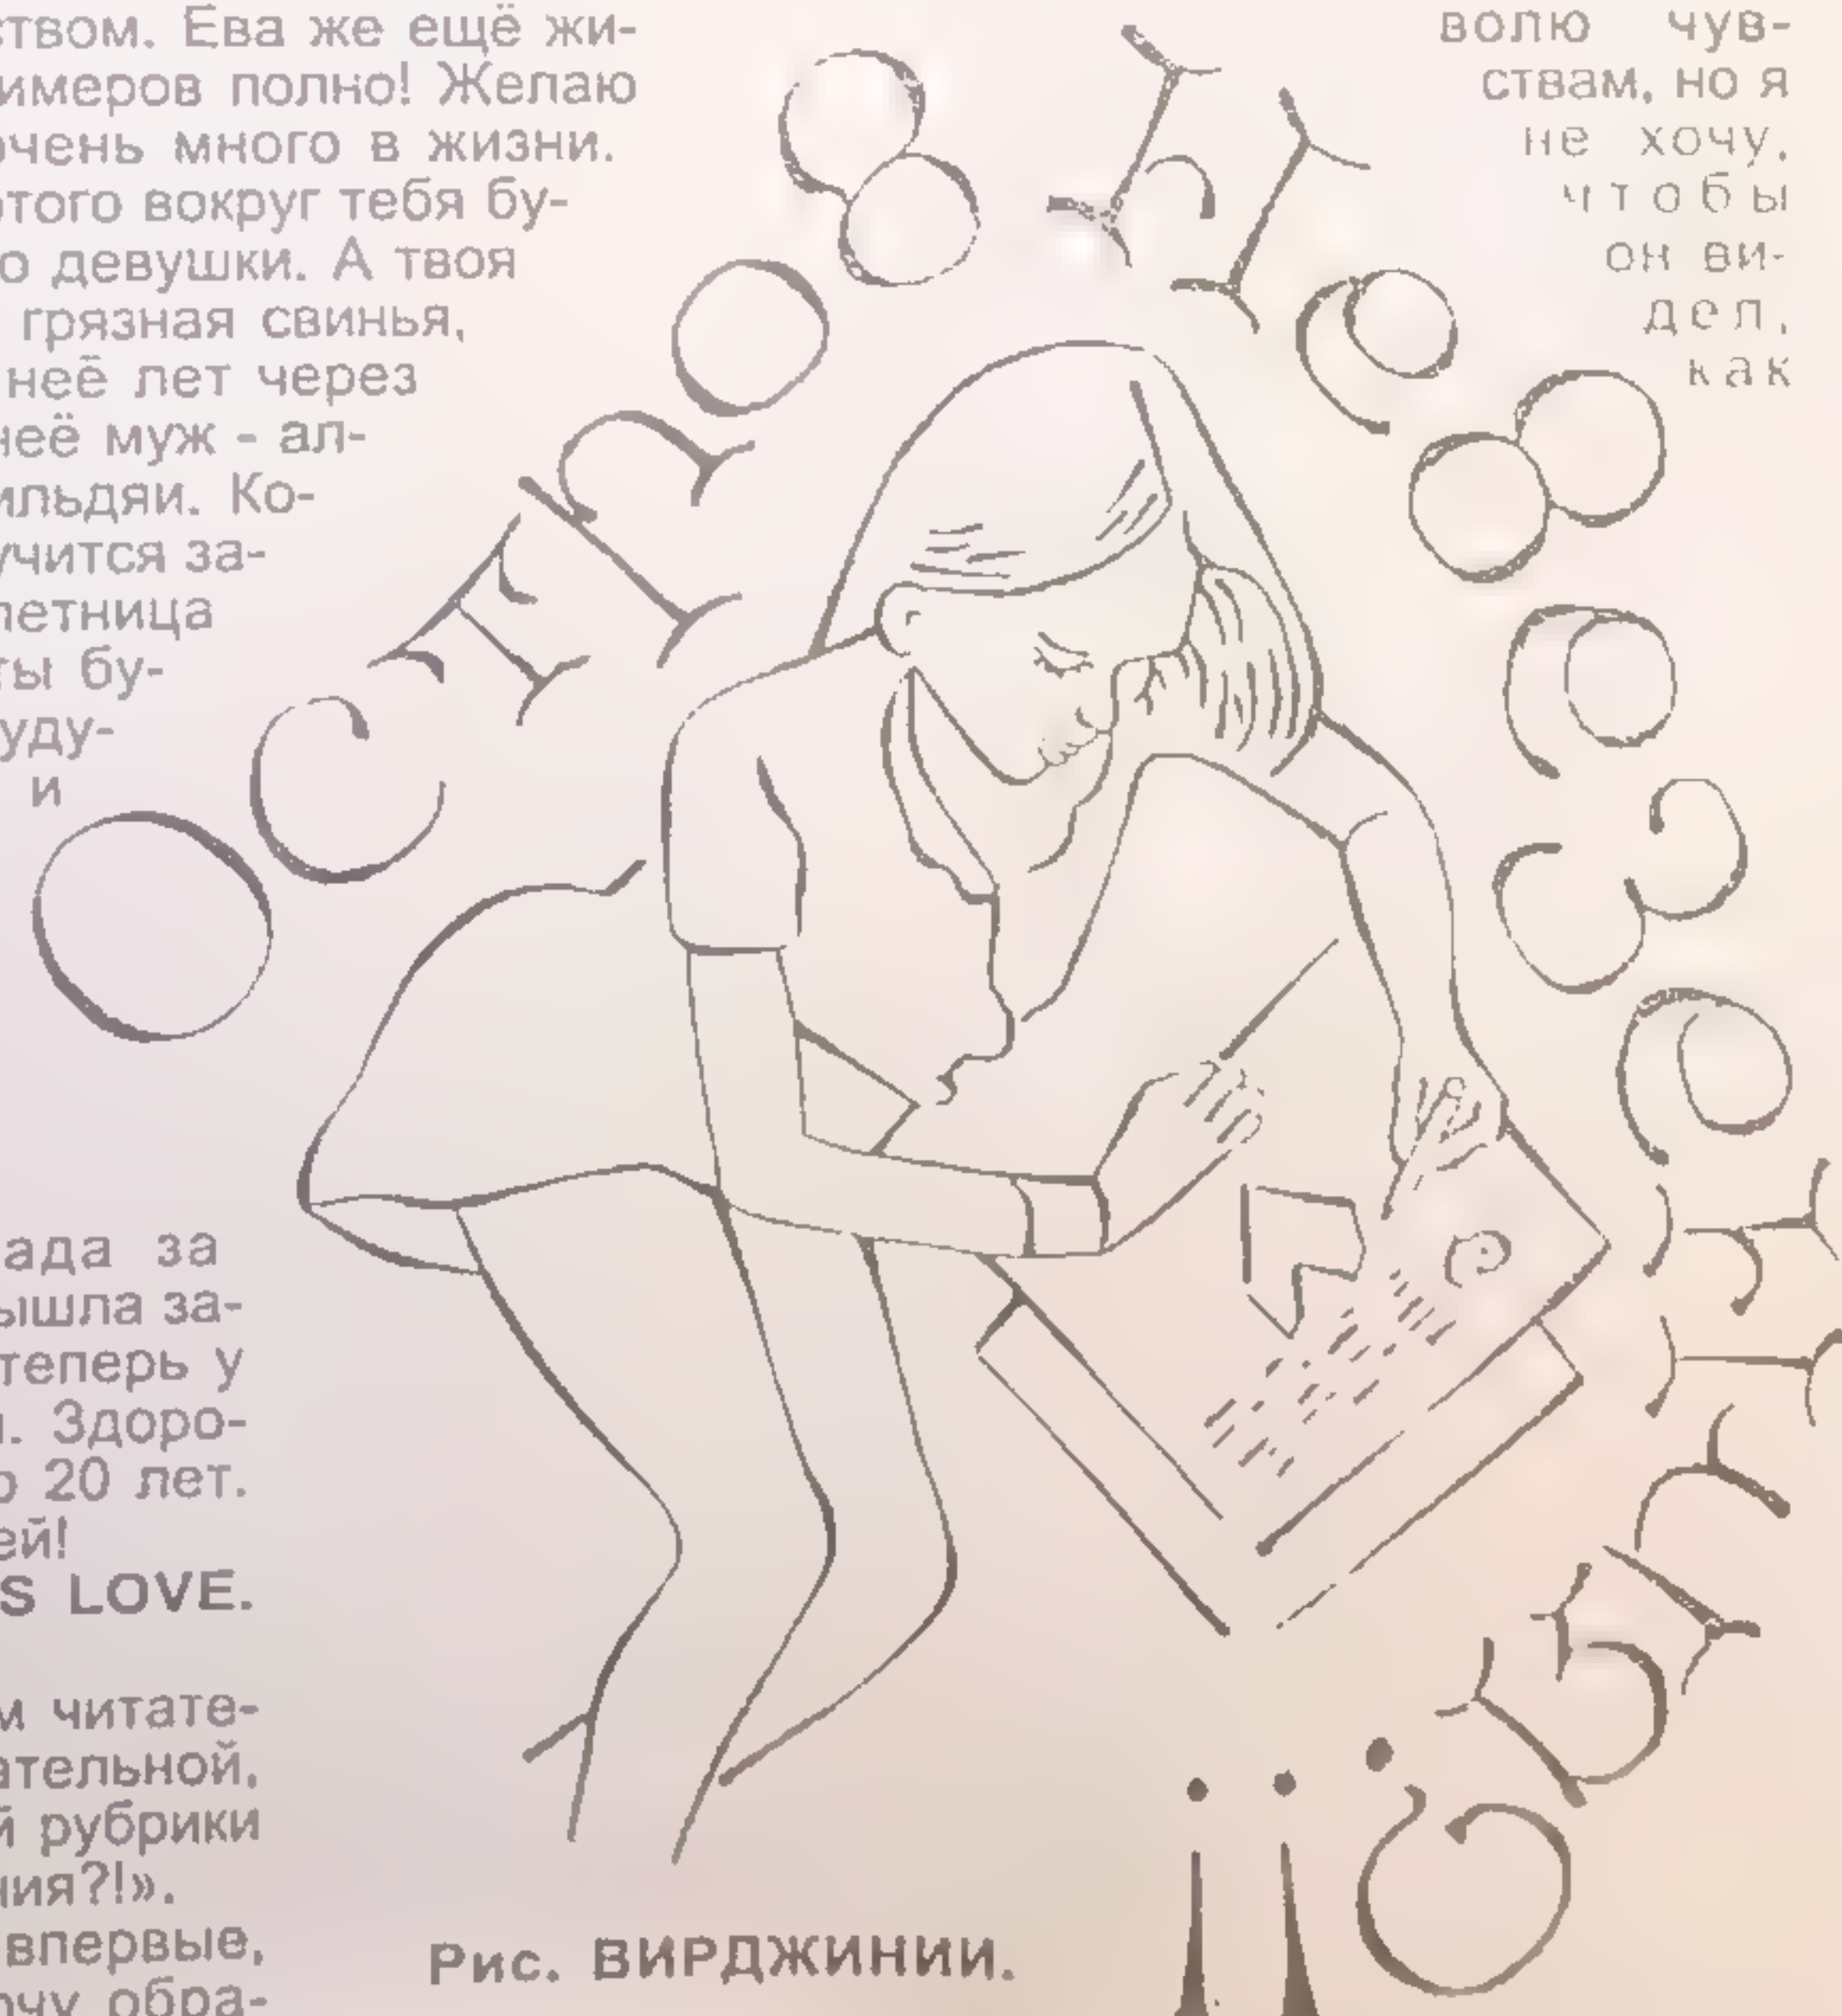 ством. Ева же ещё жи-
имеров полно! Желаю
очень много в жизни.
этого вокруг тебя бу-
о девушки. А твоя
грязная свинья,
неё лет через
неё муж - ал-
ильдяи. Ко-
учится за-
летница
ты бу-
уду-
и
ада за
ышла за-
теперь у
. Здоро-
о 20 лет.
ей!
S LOVE.
м читате-
ательной,
й рубрики
ния?!».
впервые,
очу обра-
ОСТРОВ НЕВЕЗЕНИЯ?!!
Рис. ВИРДЖИНИИ.
волю чув-
ствам, но я
не хочу,
чтобы
он ви-
дел,
как